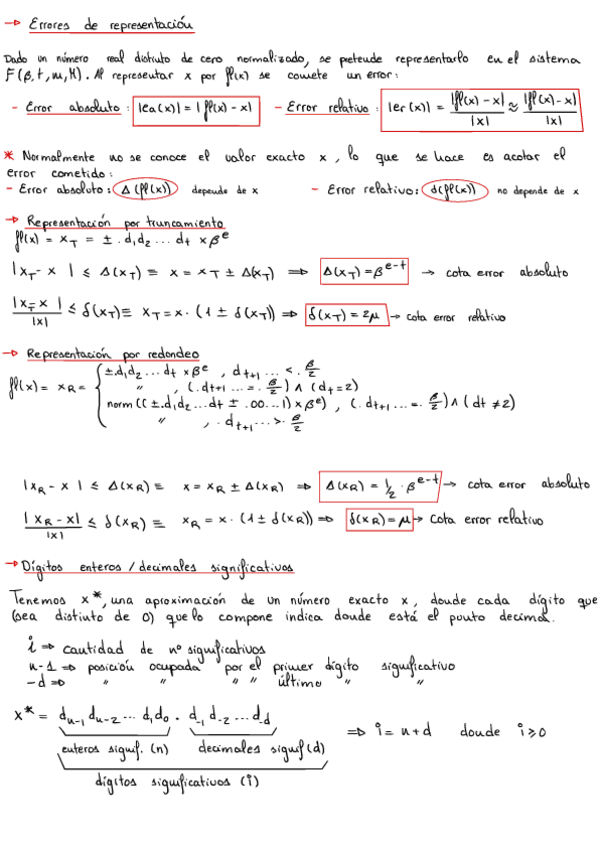 → Errores de representación
Dado un número real distinto de cero normalizado, se pretende representarlo en el sistema
F(β,t,m,M). Al representar x por fl(x) se comete un error:
- Error absoluto: |ea(x)| = |fl(x)-x| - Error relativo: |er(x)| = |fl(x)-x| / |x| ≈ |fl(x)-x| / |x|
* Normalmente no se conoce el valor exacto x, lo que se hace es acotar el
error cometido:
- Error absoluto: Δ(fl(x)) depende de x - Error relativo: δ(fl(x)) no depende de x
→ Representación por truncamiento
fl(x) = x_T = ± .d₁d₂ ... dt xβ^e
|x_T - x| ≤ Δ(x_T) ≡ x = x_T ± Δ(x_T) ⇒ Δ(x_T) = β^(e-t) → cota error absoluto
|x_T - x| / |x| ≤ δ(x_T) ≡ x_T = x·(1 ± δ(x_T)) ⇒ δ(x_T) = 2μ → cota error relativo
→ Representación por redondeo
fl(x) = x_R = { ±.d₁d₂ ... dt xβ^e , d_t+1 ... < . β/2
" , (.d_t+1 ... = . β/2) ∧ (d_t = 2)
norm ((±.d₁d₂ ... dt ± .00...1) xβ^e) , (.d_t+1 ... = . β/2) ∧ (dt ≠ 2)
" , .d_t+1 ... > . β/2
|x_R - x| ≤ Δ(x_R) ≡ x = x_R ± Δ(x_R) ⇒ Δ(x_R) = 1/2 · β^(e-t) → cota error absoluto
|x_R - x| / |x| ≤ δ(x_R) ≡ x_R = x·(1 ± δ(x_R)) ⇒ δ(x_R) = μ → cota error relativo
→ Dígitos enteros / decimales significativos
Tenemos x*, una aproximación de un número exacto x, donde cada dígito que
(sea distinto de 0) que lo compone indica donde está el punto decimal.
i ⇒ cantidad de nº significativos
n-1 ⇒ posición ocupada por el primer dígito significativo
-d ⇒ " " " " último " "
x* = d_n-1 d_n-2 ... d₁d₀ . d_-1 d_-2 ... d_-d ⇒ i = n+d donde i ≥ 0
enteros signif. (n) decimales signif (d)
dígitos significativos (i)